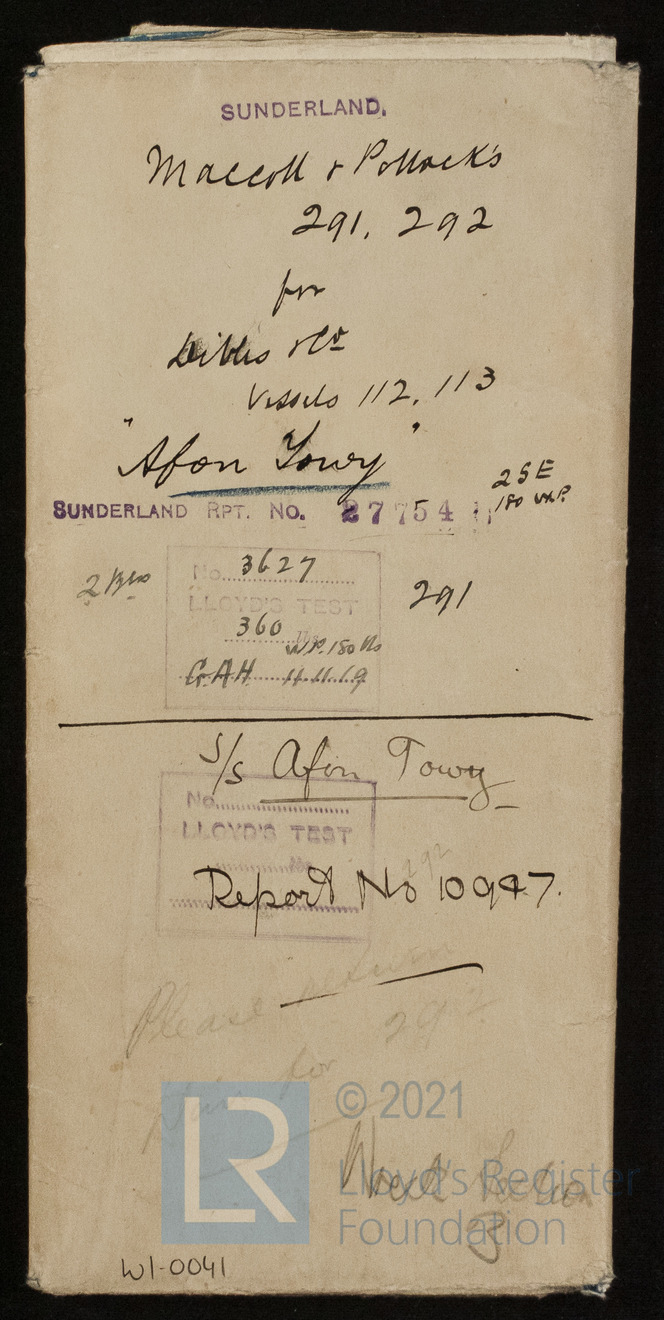 SUNDERLAND.
Maccoll & Pollock's
291, 292
for
Dibles & Co
Vessels 112, 113
"Afon Towy"
2 SE
180 W.P.
SUNDERLAND RPT. NO. 27754
2 Blrs
No. 3627
LLOYD'S TEST
360 lbs
W.P. 180 lbs
GAH 11.11.19
291
S/S Afon Towy
No.
LLOYD'S TEST
lbs
292
Report No 10947.
Please return
292
for
LR
© 2021
Lloyd's Register
Foundation
W1-0041